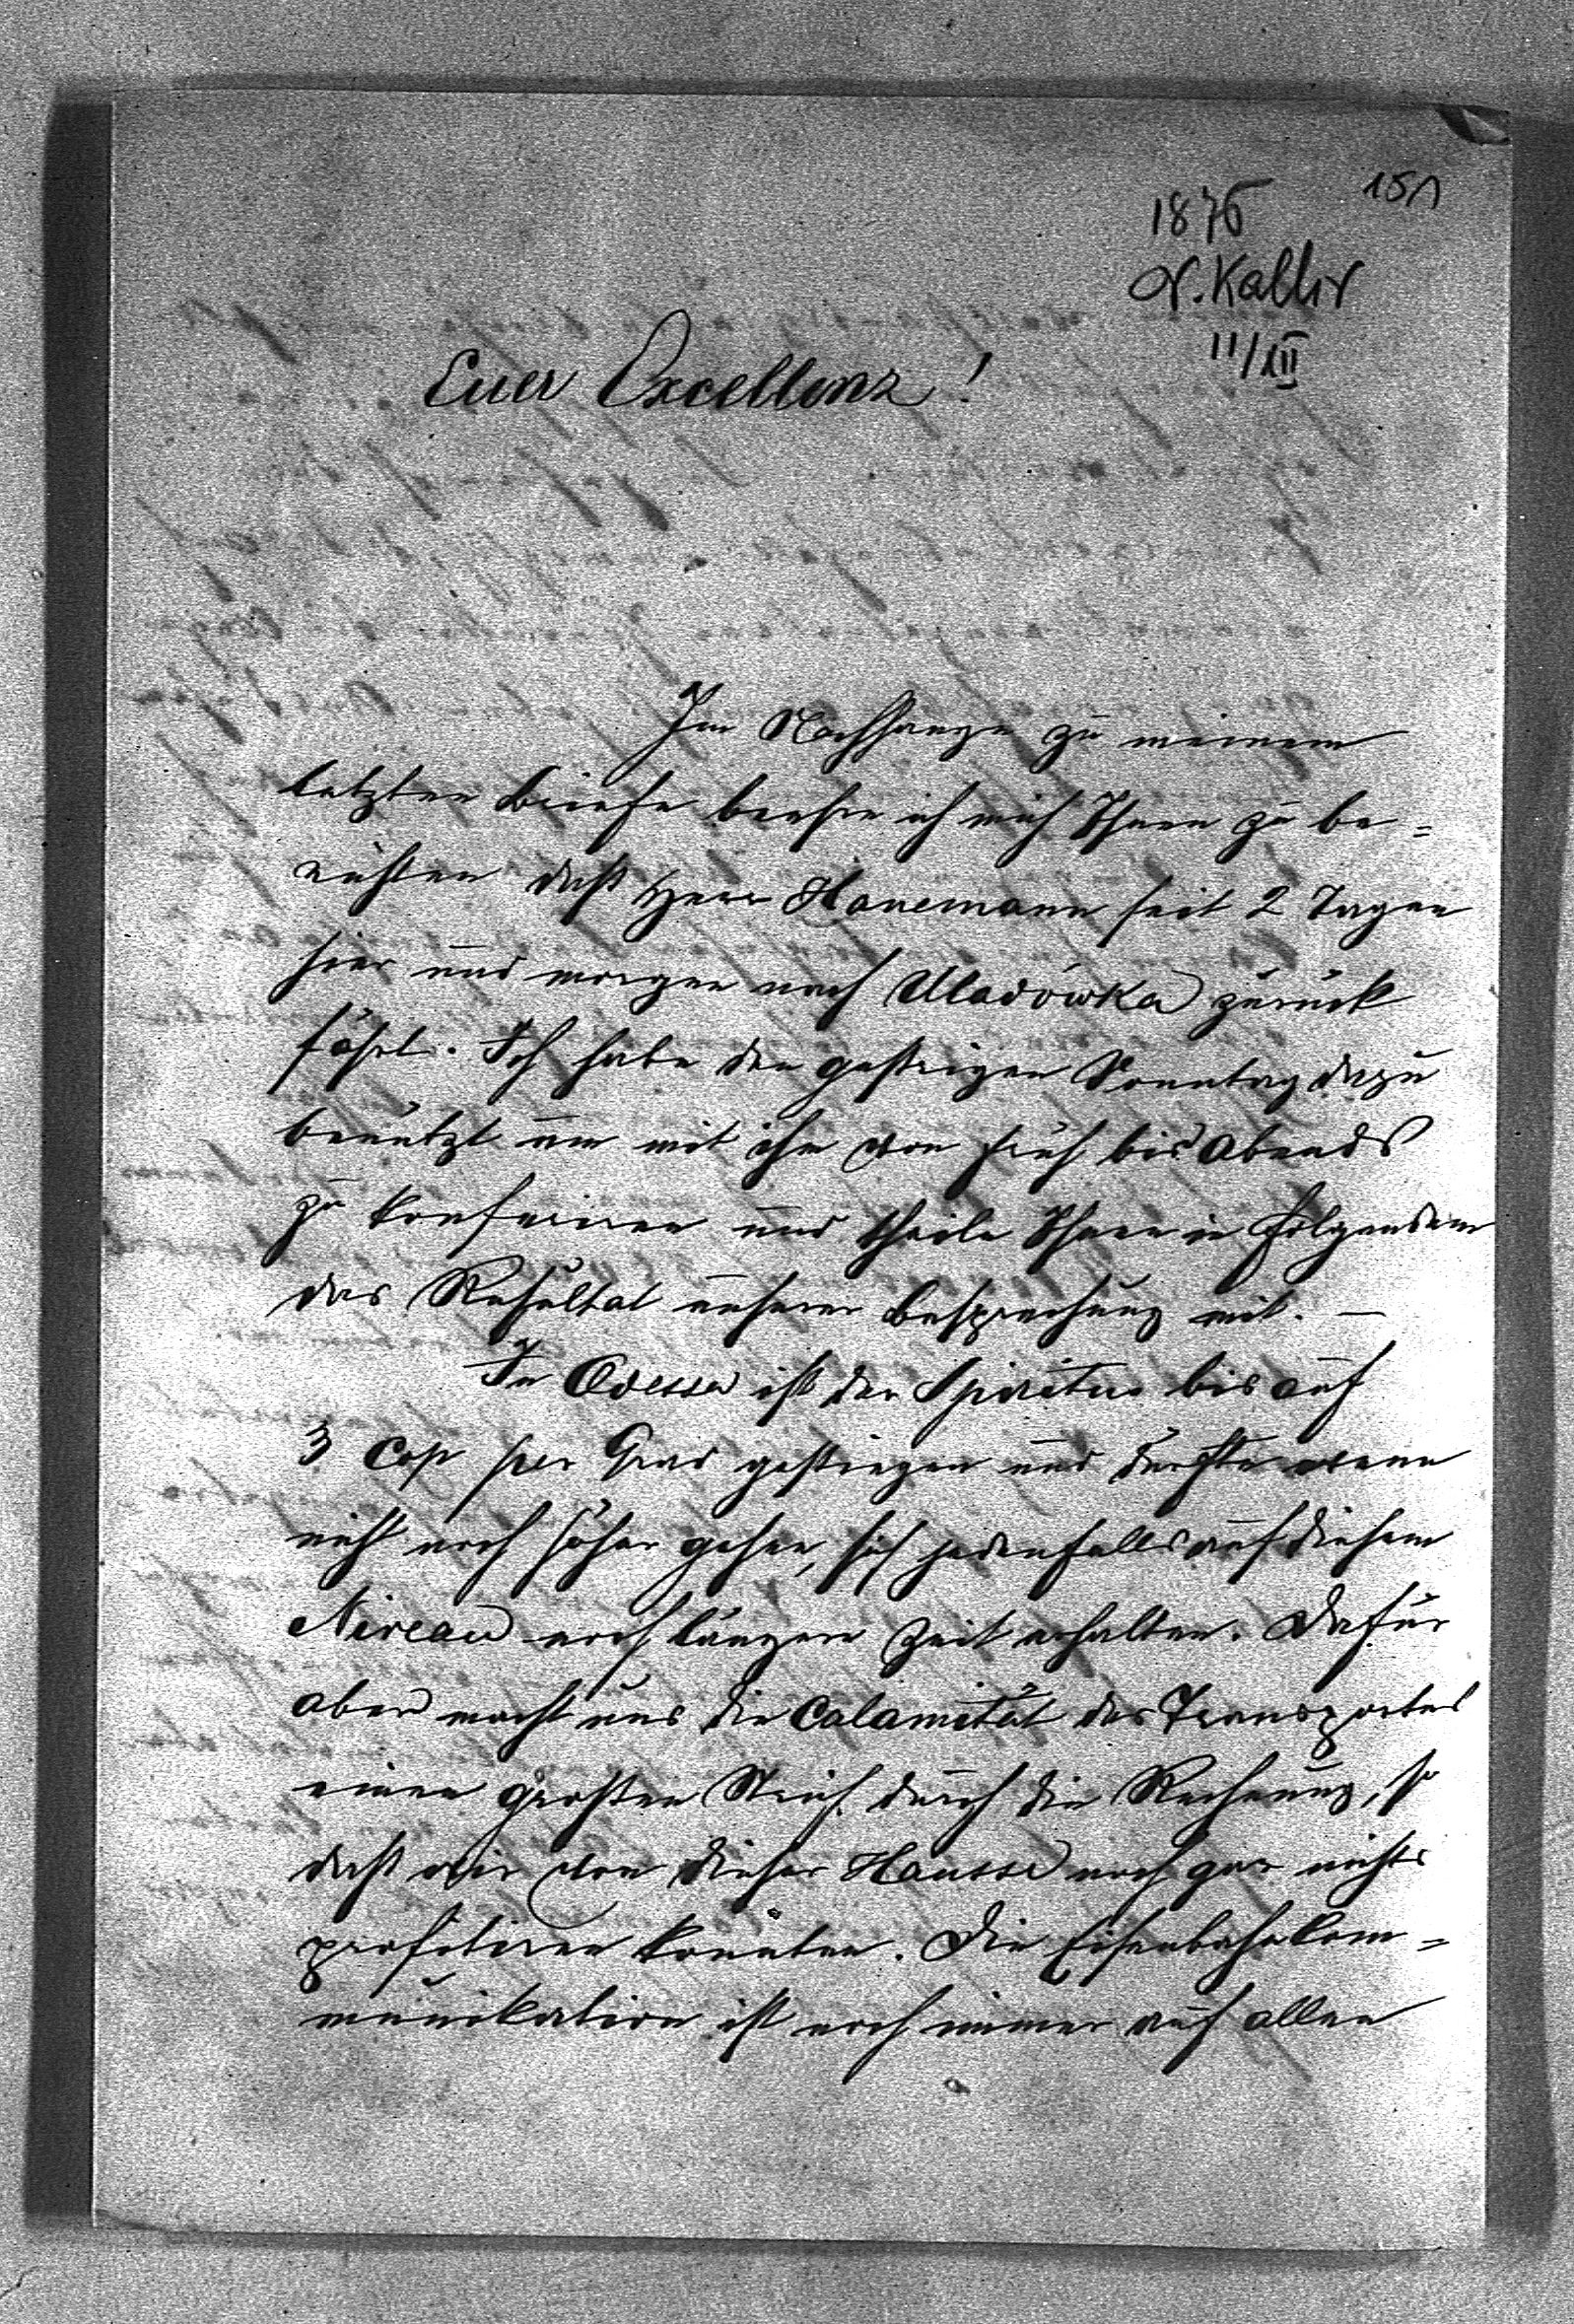 151
1876
N. Kallir
11/III
Euer Excellenz!
Im Nachhange zu meinem
letzten Briefe beehre ich mich Ihnen zu be=
richten daß Herr Hanemann seit 2 Tagen
hier und morgen nach Uladówka zurück
fährt. Ich habe den gestrigen Sonntag dazu
benützt um mit ihm von früh bis Abends
zu konferiren und theile Ihnen in Folgendem
das Resultat unserer Besprechung mit. —
In Odessa ist der Spiritus bis auf
3 Cop per Grad gestiegen und dürfte wenn
nicht noch höher gehen, sich jedenfalls auf diesem
Niveau noch längere Zeit erhalten. Dafür
aber macht uns die Calamität des Transportes
einen großen Strich durch die Rechnung, so
daß wir von dieser Hausse noch gar nichts
profitiren konnten. Die Eisenbahnkom=
munikation ist noch immer auf allen